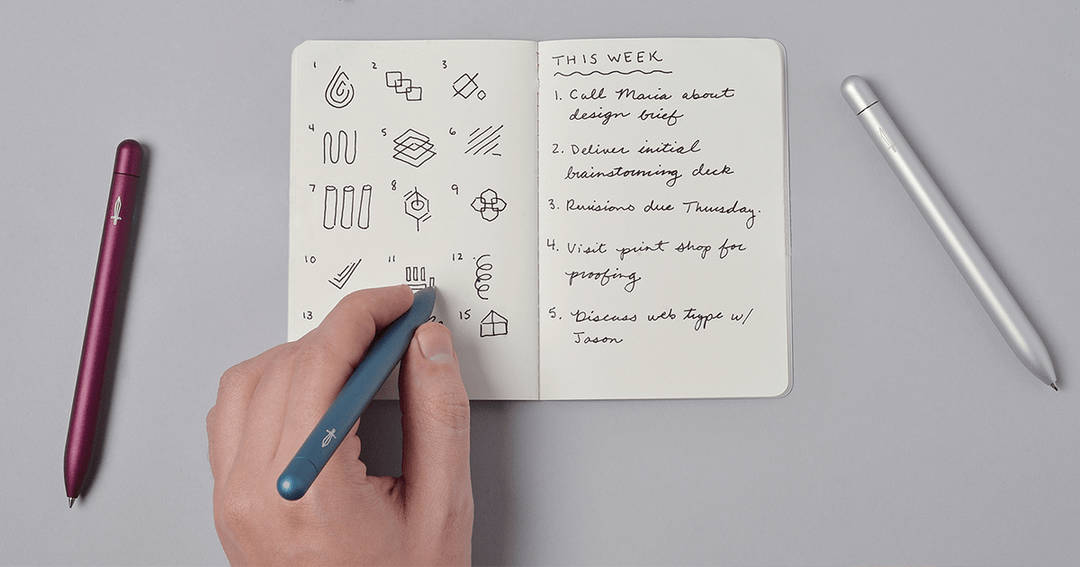 1
2
3
4
5
6
7
8
9
10
11
12
13
15
THIS WEEK
1. Call Maria about
design brief
2. Deliver initial
brainstorming deck
3. Revisions due Thursday.
4. Visit print shop for
proofing
5. Discuss web type w/
Jason